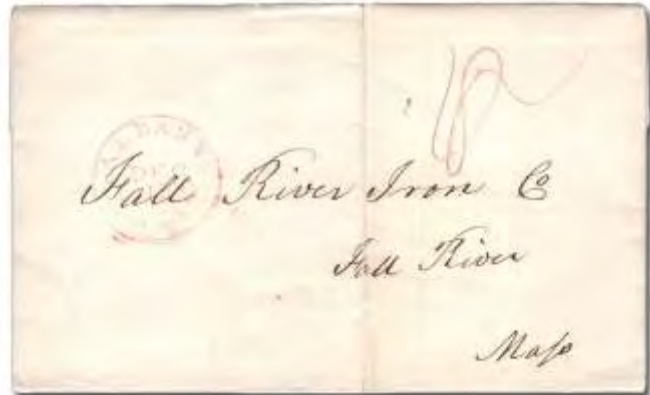 ALBANY
Fall River Iron Co
Fall River
Mass